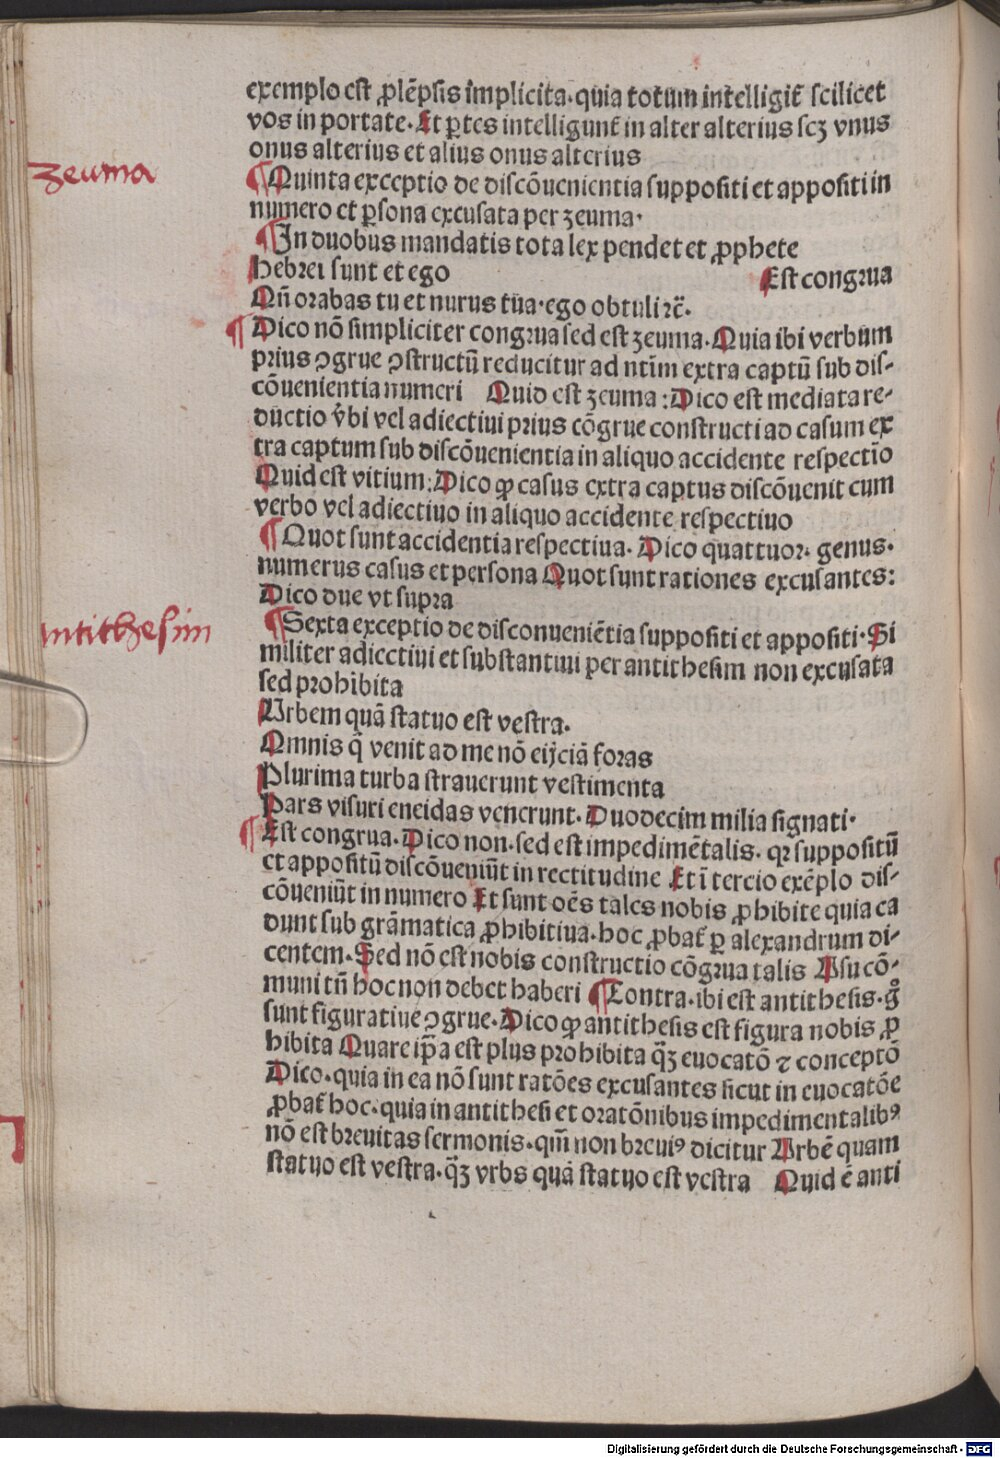 exemplo est ꝓlēpsis implicita·quia totum intelligit̄ scilicet
vos in portate·Et ꝑtes intelligunt̄ in alter alterius scꝫ vnus
onus alterius et alius onus alterius
zeuma
¶Quinta exceptio de discōuenientia suppositi et appositi in
numero et ꝑsona excusata per zeuma·
¶In duobus mandatis tota lex pendet et ꝓphete
Hebrei sunt et ego Est congrua
Qn̄ orabas tu et nurus tua·ego obtuli ⁊c̄.
¶Dico nō simpliciter congrua sed est zeuma·Quia ibi verbum
prius ꝯgrue ꝯstructū reducitur ad ntīm extra captū sub dis⸗
cōuenientia numeri Quid est zeuma:Dico est mediata re⸗
ductio v̄bi vel adiectiui prius cōgrue constructi ad casum ex
tra captum sub discōuenientia in aliquo accidente respectīo
Quid est vitium:Dico ꝙ casus extra captus discōuenit cum
verbo vel adiectiuo in aliquo accidente respectiuo
¶Quot sunt accidentia respectiua·Dico quattuor· genus·
numerus casus et persona Quot sunt rationes excusantes:
Dico due vt supra
antithesim
¶Sexta exceptio de disconueniētia suppositi et appositi·Si
militer adiectiui et substantiui per antithesim non excusata
sed prohibita
Urbem quā statuo est vestra.
Omnis q̄ venit ad me nō eijciā foras
Plurima turba strauerunt vestimenta
Pars visuri eneidas venerunt·Duodecim milia signati·
¶Est congrua·Dico non·sed est impedimētalis· qꝛ suppositū
et appositū discōueniūt in rectitudine Et ī tercio exēplo dis⸗
cōueniūt in numero Et sunt oēs tales nobis ꝓhibite quia ca
dunt sub grāmatica ꝓhibitiua·hoc ꝓbat̄ ꝑ alexandrum di⸗
centem·Sed nō est nobis constructio cōgrua talis Usu cō⸗
muni tn̄ hoc non debet haberi ¶Contra·ibi est antithesis·gͦ
sunt figuratiue ꝯgrue·Dico ꝙ antithesis est figura nobis ꝓ
hibita Quare ip̄a est plus prohibita q̄ꝫ euocatō ⁊ conceptō
Dico·quia in ea nō sunt ratōes excusantes sicut in euocatōe
ꝓbat̄ hoc·quia in antithesi et oratōnibus impedimentalibꝰ
nō est breuitas sermonis·qm̄ non breuiꝰ dicitur Urbē quam
statuo est vestra·q̄ꝫ vrbs quā statuo est vestra Quid ē anti
Digitalisierung gefördert durch die Deutsche Forschungsgemeinschaft - DFG